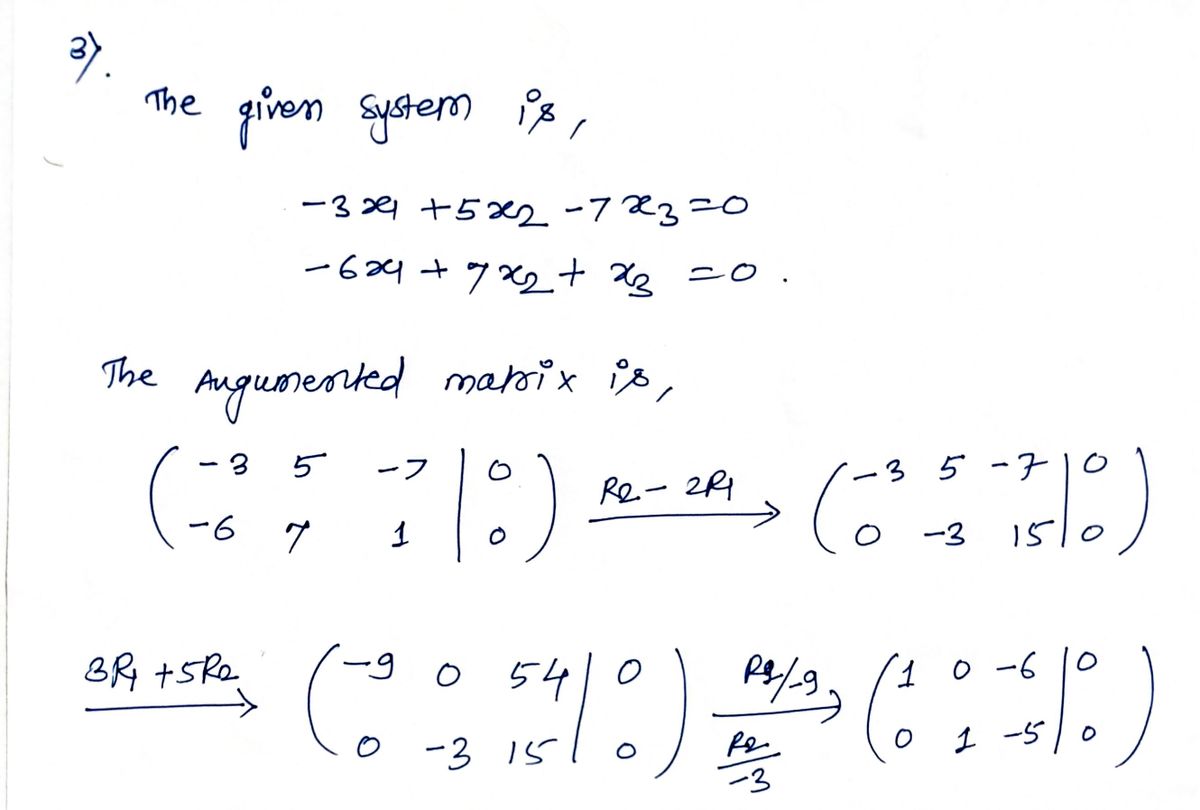 3).
The given system is,
-3x1 +5x2 -7x3=0
-6x1 + 7x2 + x3 =0.
The Augumented matrix is,
(-3 5 -7 | 0) R2 - 2R1 (-3 5 -7 | 0)
(-6 7 1 | 0) → (0 -3 15 | 0)
3R1 +5R2 (-9 0 54 | 0) R1/-9, (1 0 -6 | 0)
→ (0 -3 15 | 0) → R2/-3 (0 1 -5 | 0)